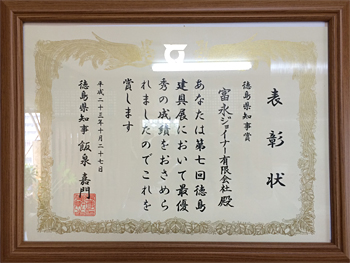 表彰状
徳島県知事賞
富永ジョイナー有限会社殿
あなたは第七回徳島
建具展において最優
秀の成績をおさめら
れましたのでこれを
賞します
平成二十三年十月二十七日
徳島県知事 飯泉嘉門